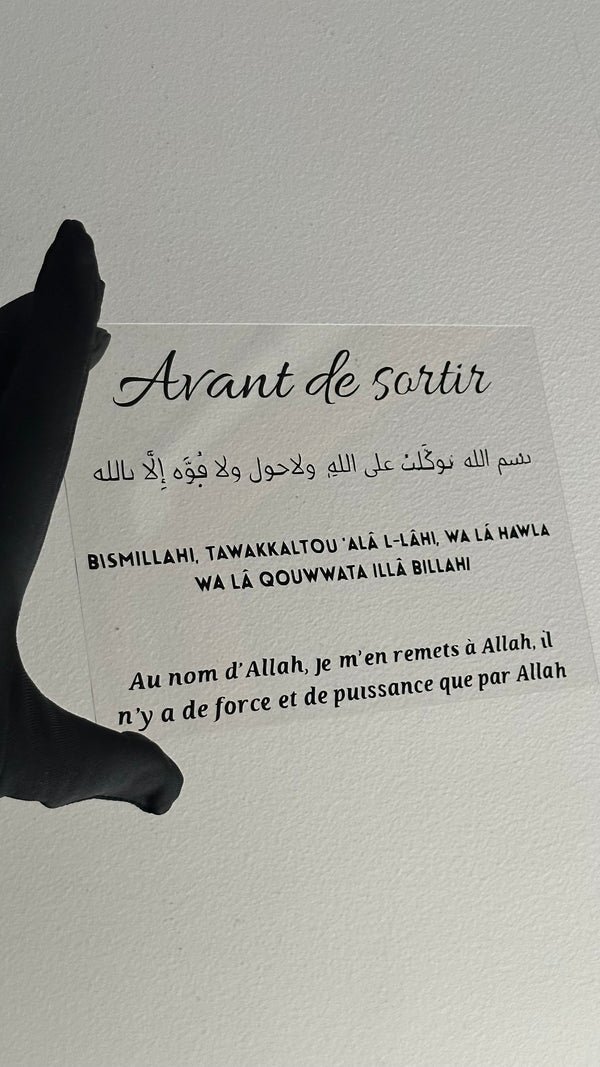 Avant de sortir
بسم الله توكَّلتُ على اللهِ ولاحول ولا قُوَّه إِلَّا بالله
BISMILLAHI, TAWAKKALTOU 'ALÂ L-LÂHI, WA LÁ HAWLA
WA LÂ QOUWWATA ILLÂ BILLAHI
Au nom d'Allah, Je m'en remets à Allah, il
n'y a de force et de puissance que par Allah